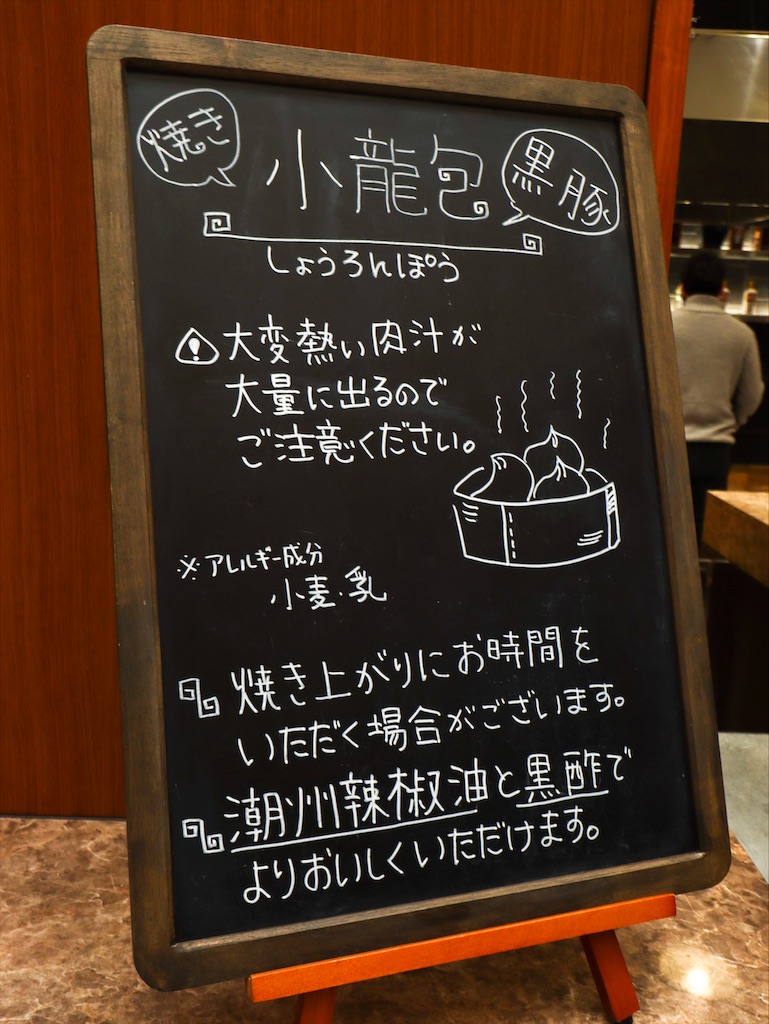 焼き
小龍包
黒豚
しょうろんぽう
大変熱い肉汁が
大量に出るので
ご注意ください。
※アレルギー成分
小麦・乳
焼き上がりにお時間を
いただく場合がございます。
潮州辣椒油と黒酢で
よりおいしくいただけます。